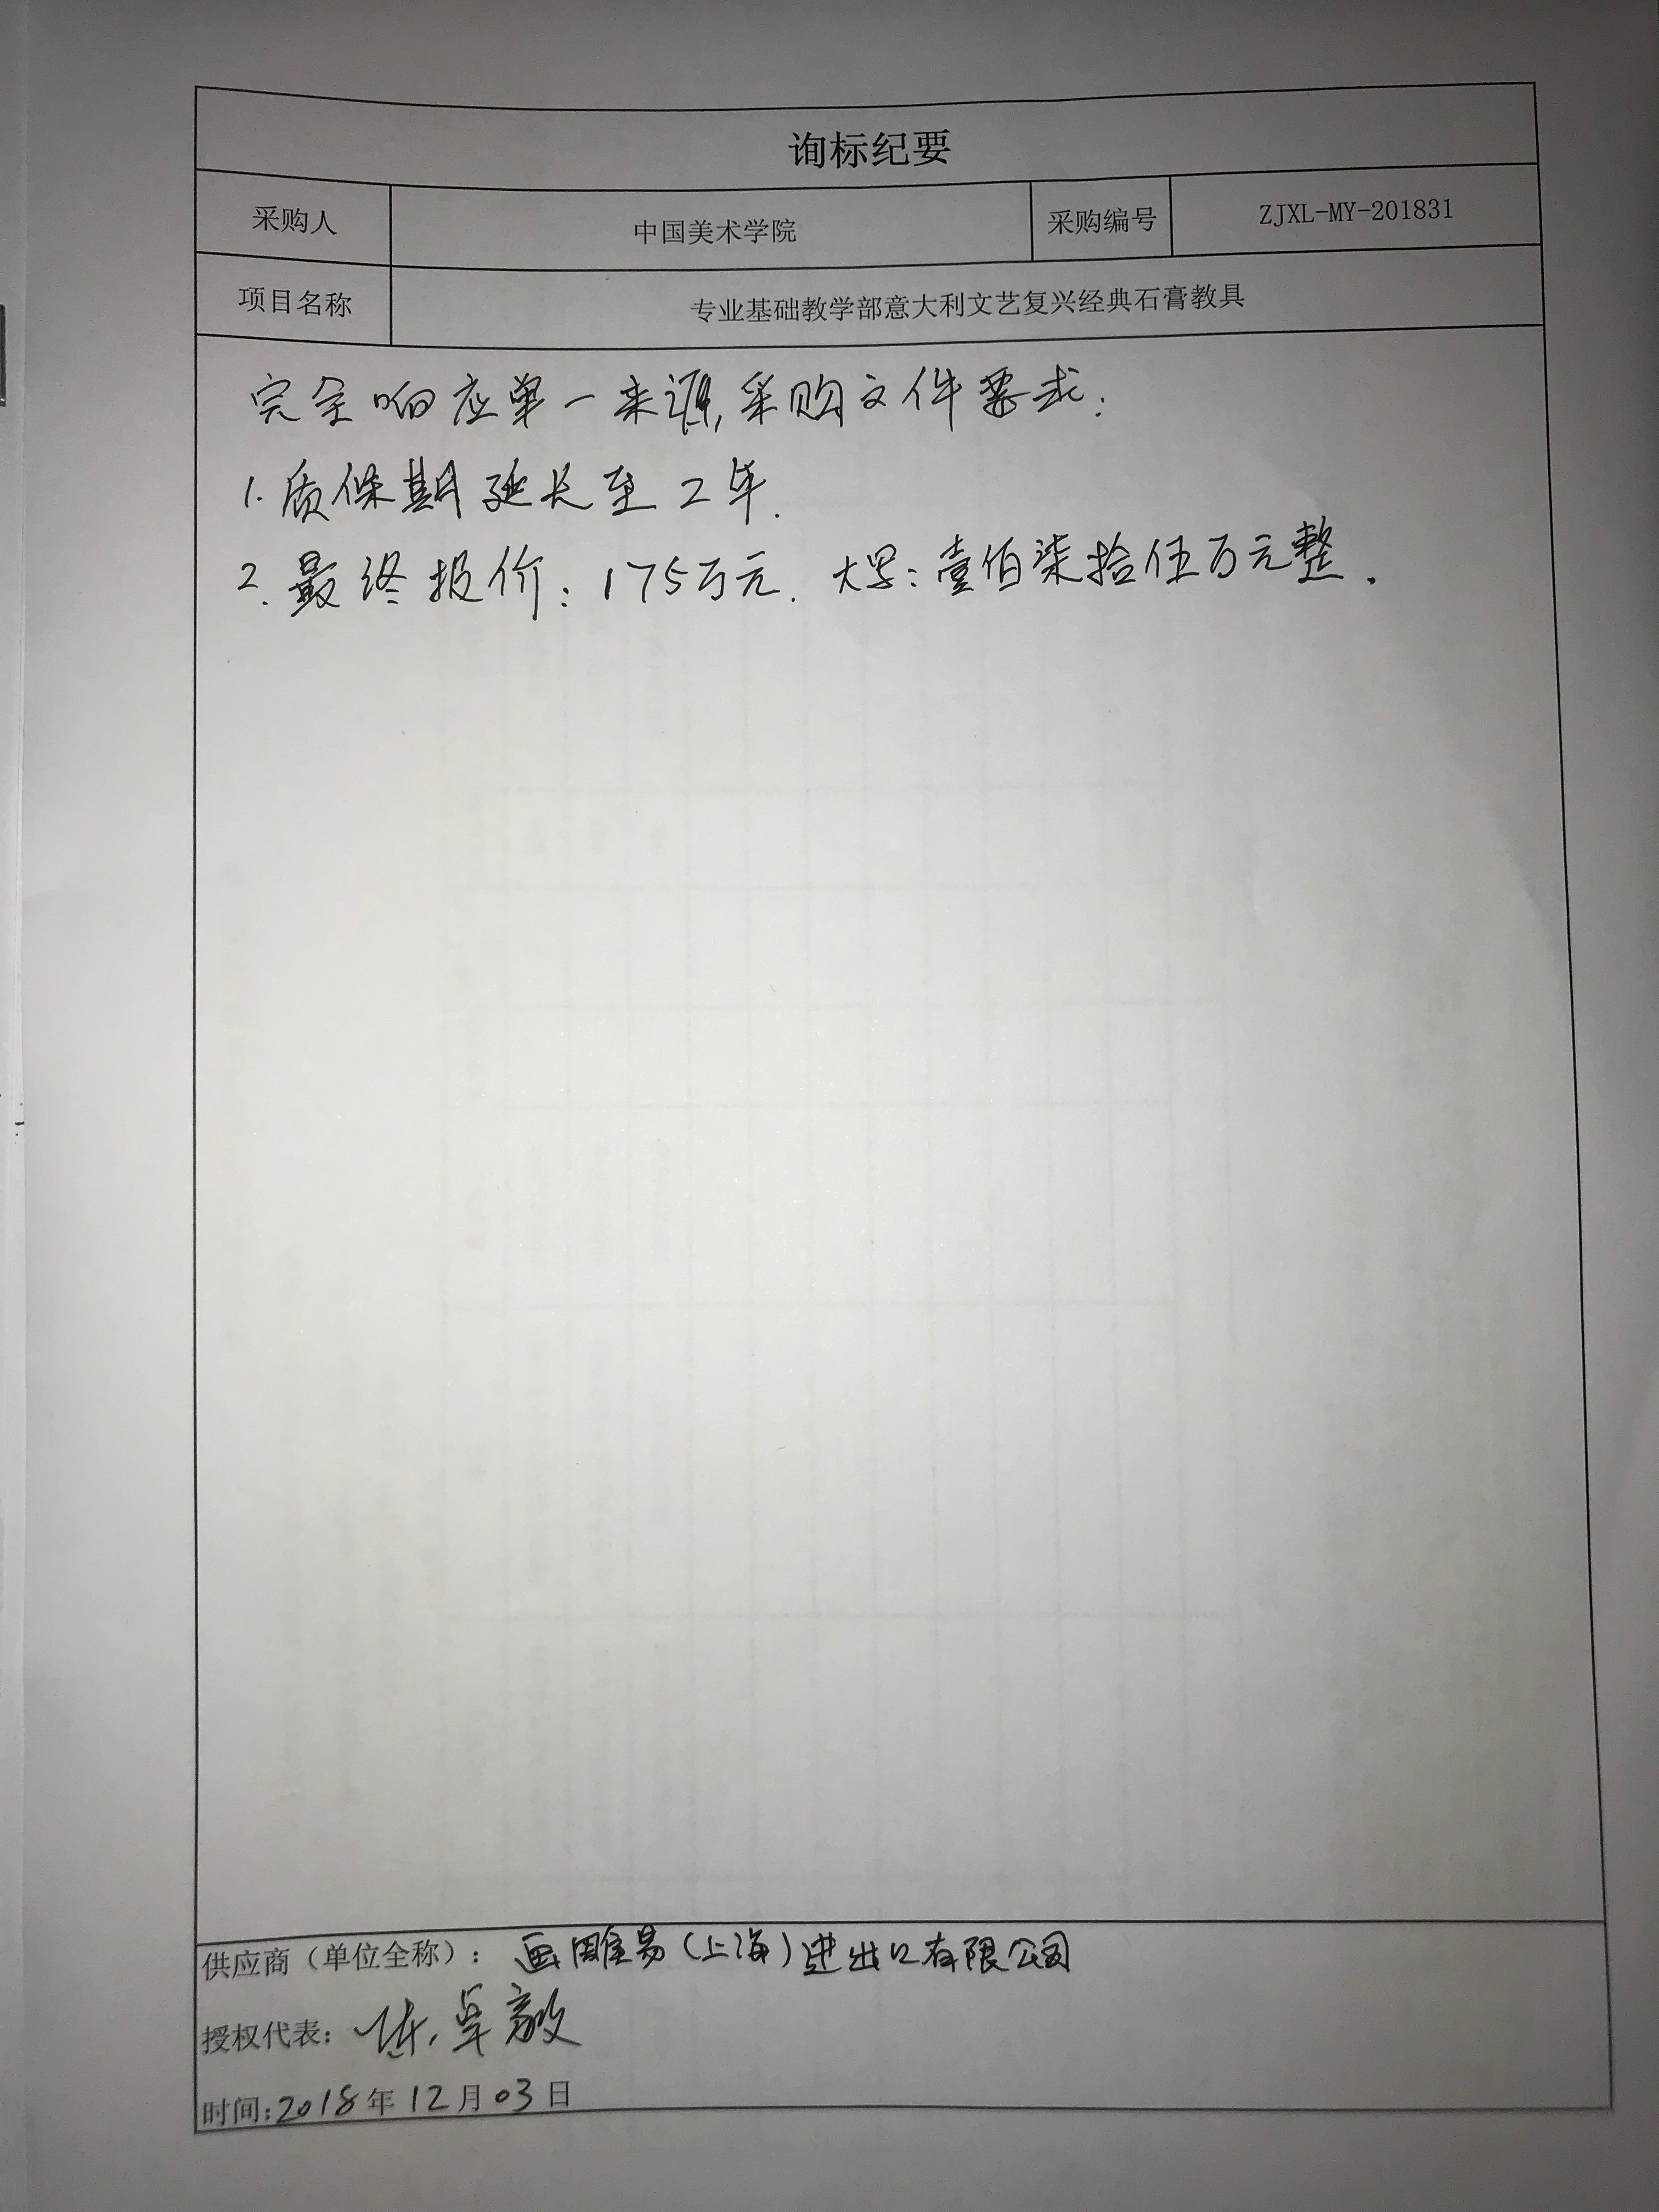 询标纪要
采购人 中国美术学院 采购编号 ZJXL-MY-201831
项目名称 专业基础教学部意大利文艺复兴经典石膏教具
完全响应单一来源,采购文件要求:
1.质保期延长至2年.
2.最终报价:175万元. 大写:壹佰柒拾伍万元整.
供应商(单位全称): 画雕易(上海)进出口有限公司
授权代表: 陈卓毅
时间:2018年12月03日